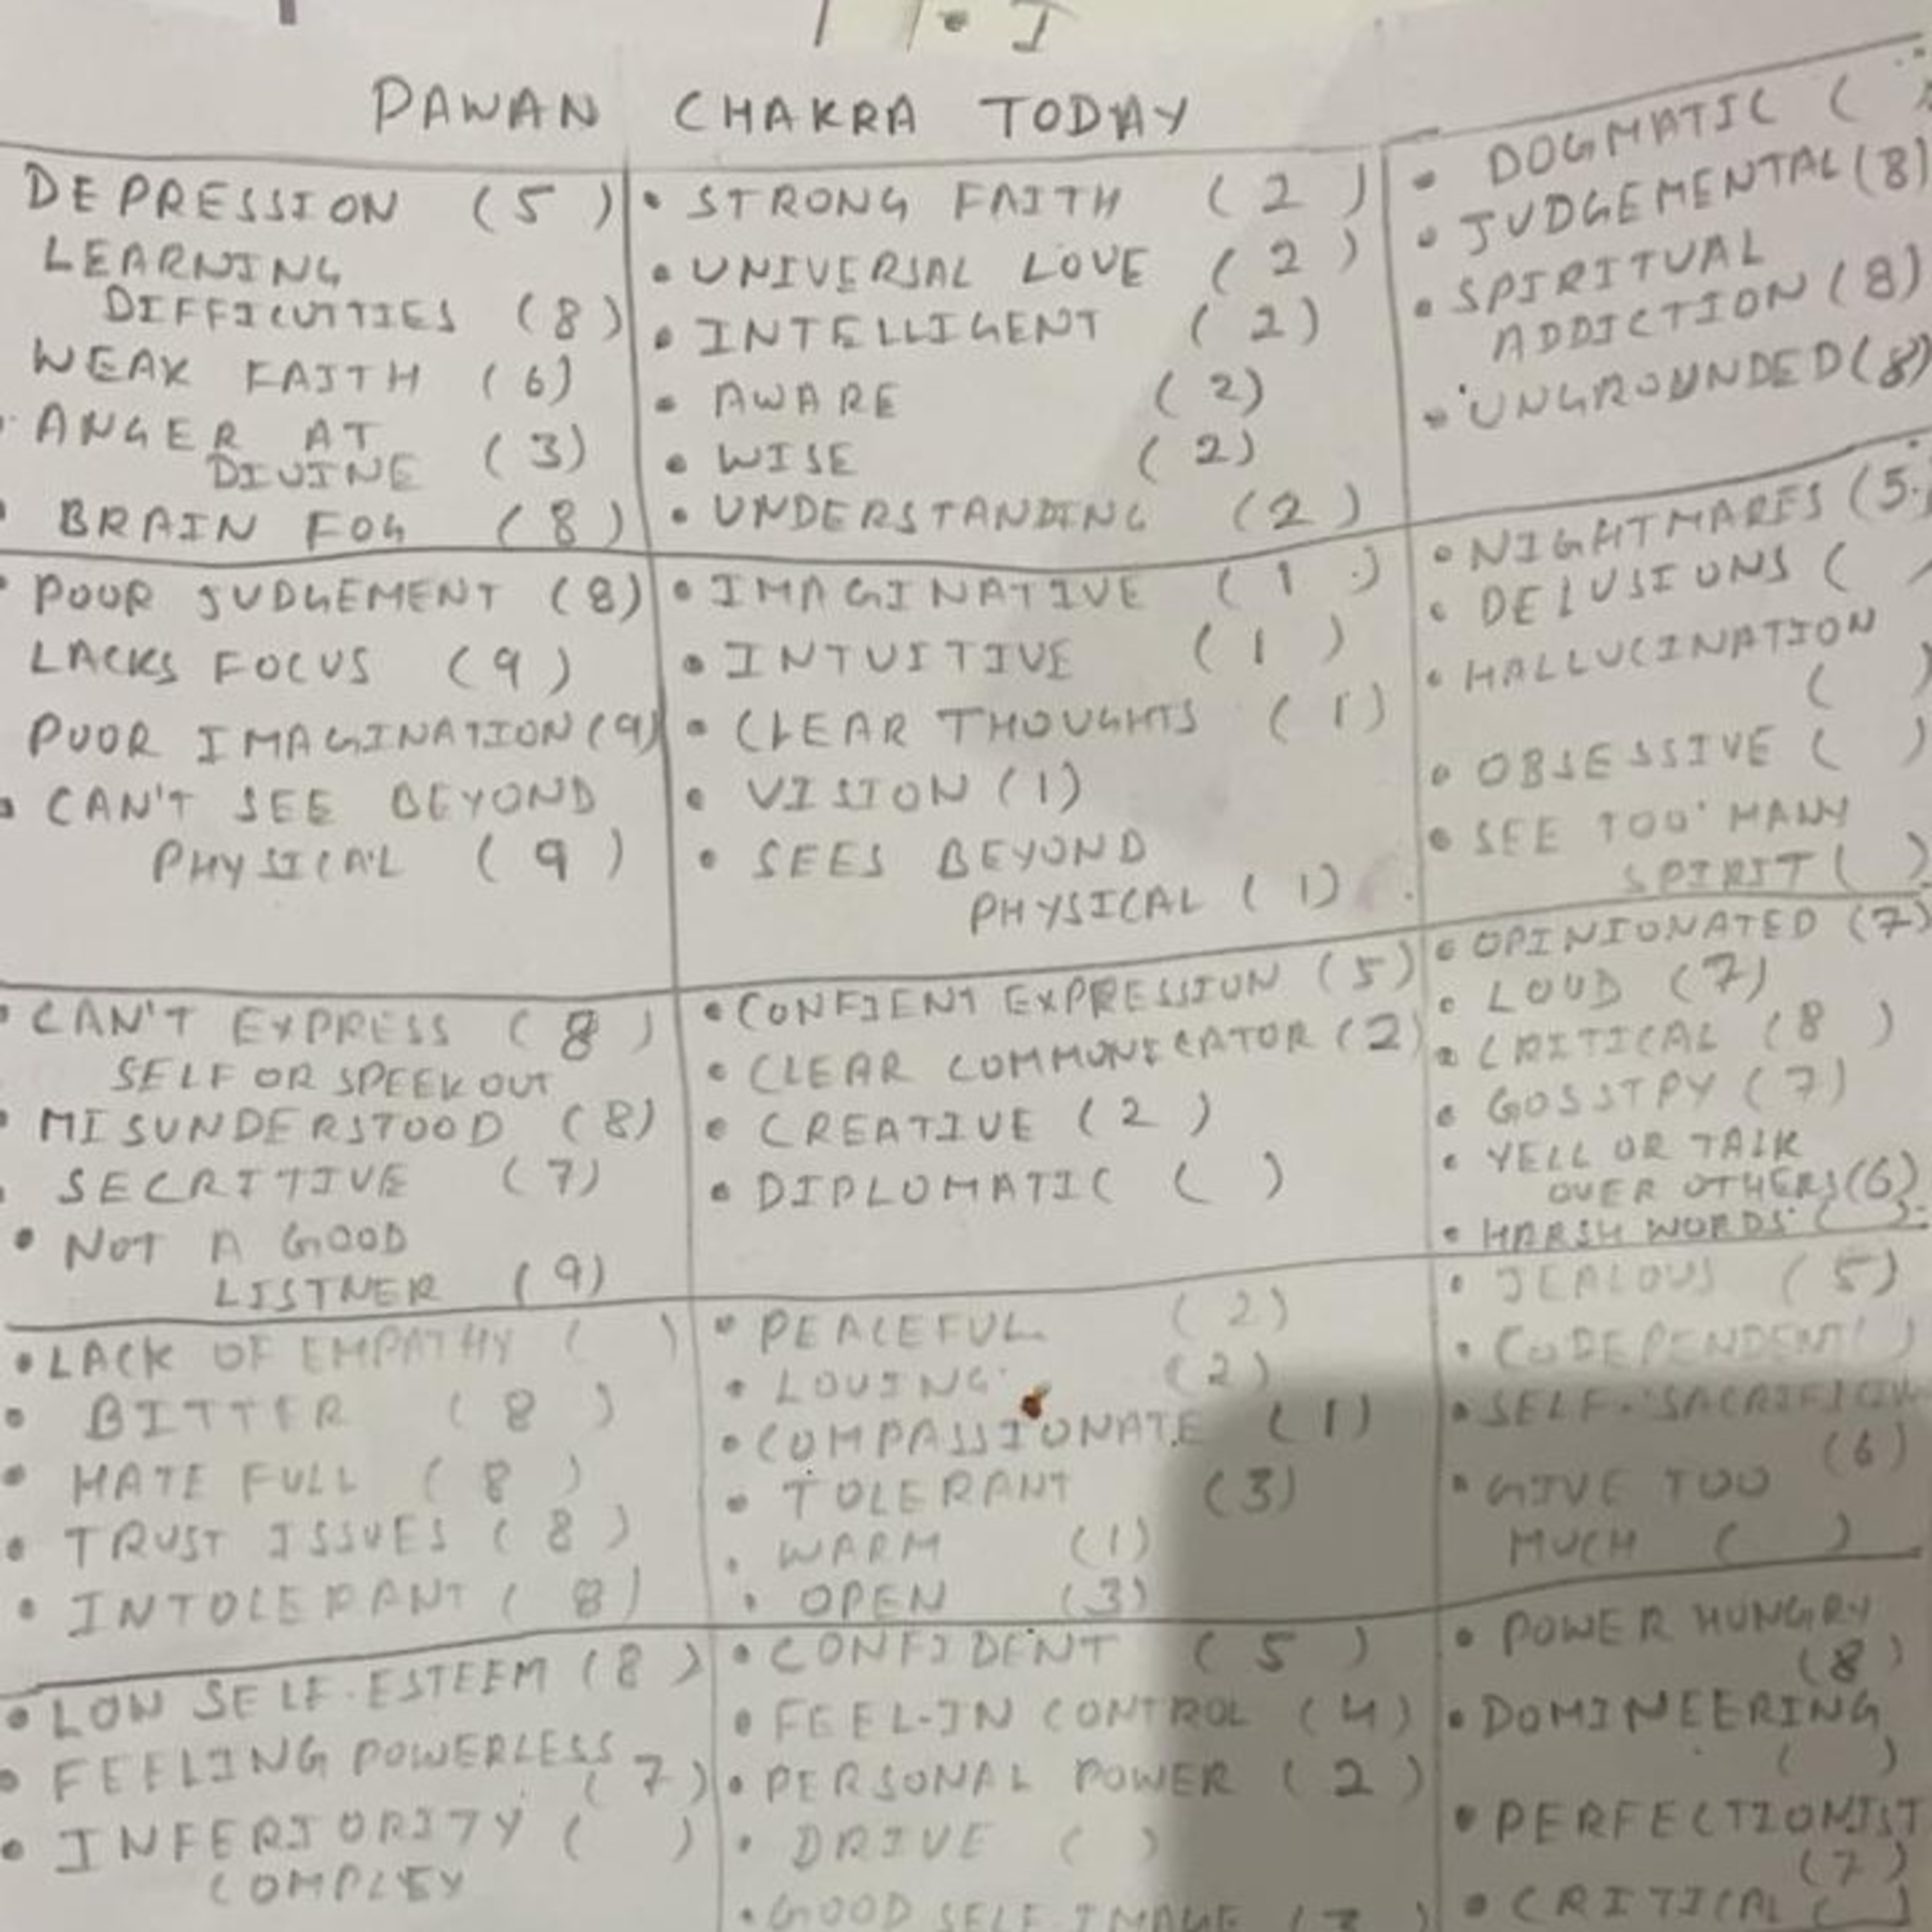 PAWAN CHAKRA TODAY
DEPRESSION (5)
LEARNING
DIFFICUTTIES (8)
WEAK FAITH (6)
• ANGER AT
DIVINE (3)
• BRAIN FOG (8)
• STRONG FAITH (2)
• UNIVERSAL LOVE (2)
• INTELLIGENT (2)
• AWARE (2)
• WISE (2)
• UNDERSTANDING (2)
• DOGMATIC (
• JUDGEMENTAL (8)
• SPIRITUAL
ADDICTION (8)
• UNGROUNDED (8)
• POOR JUDGEMENT (8)
LACKS FOCUS (9)
POOR IMAGINATION (9)
• CAN'T SEE BEYOND
PHYSICAL (9)
• IMAGINATIVE (1)
• INTUITIVE (1)
• CLEAR THOUGHTS (1)
• VISION (1)
• SEES BEYOND
PHYSICAL (1)
• NIGHTMARES (5
• DELUSIONS (
• HALLUCINATION
( )
• OBSESSIVE ( )
• SEE TOO MANY
SPIRIT ( )
• CAN'T EXPRESS (8)
SELF OR SPEEK OUT
• MISUNDERSTOOD (8)
• SECRITIVE (7)
• NOT A GOOD
LISTNER (9)
• CONFIENT EXPRESSION (5)
• CLEAR COMMUNICATOR (2)
• CREATIVE (2)
• DIPLOMATIC ( )
• OPINIONATED (7)
• LOUD (7)
• CRITICAL (8)
• GOSSIPY (7)
• YELL OR TALK
OVER OTHERS (6)
• HARSH WORDS ( )
• LACK OF EMPATHY ( )
• BITTER (8)
• HATE FULL (8)
• TRUST ISSUES (8)
• INTOLERANT (8)
• PEACEFUL (2)
• LOVING (2)
• COMPASSIONATE (1)
• TOLERANT (3)
• WARM (1)
• OPEN (3)
• JEALOUS (5)
• CODEPENDENT ( )
• SELF-SACRIFICIN
(6)
• GIVE TOO
MUCH ( )
• LOW SELF-ESTEEM (8)
• FEELING POWERLESS
(7)
• INFERIORITY ( )
COMPLEX
• CONFIDENT (5)
• FEEL-IN CONTROL (4)
• PERSONAL POWER (2)
• DRIVE ( )
• GOOD SELF IMAGE
• POWER HUNGRY
(8)
• DOMINEERING
( )
• PERFECTIONIST
(7)
• CRITICAL ( )